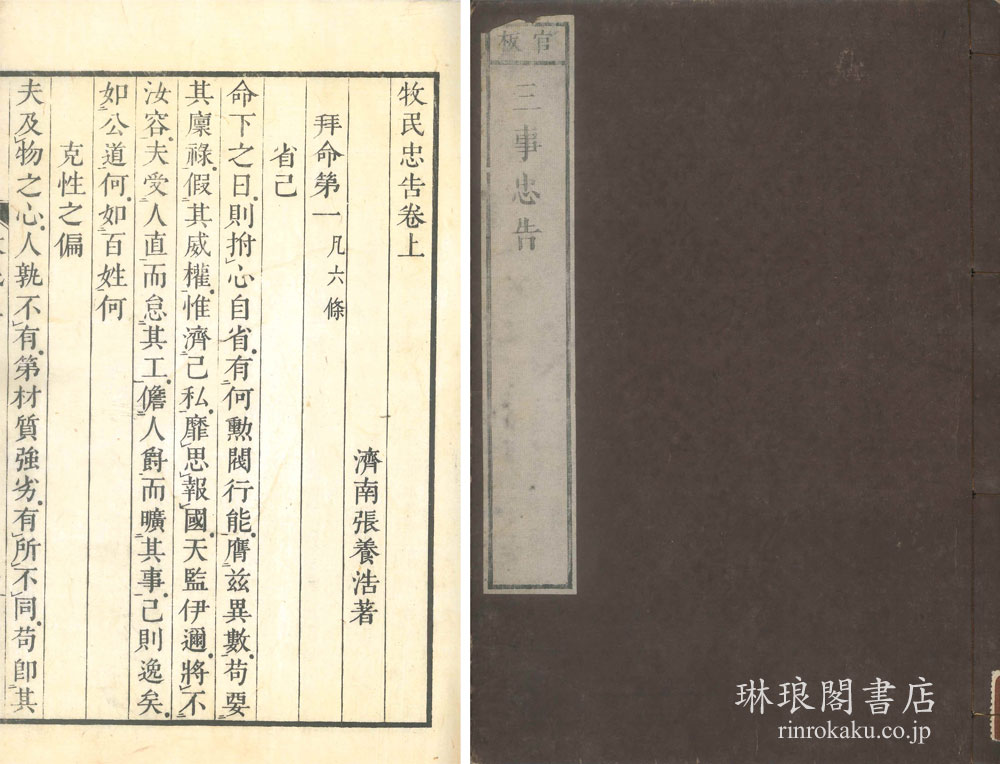 牧民忠告卷上
濟南張養浩著
拜命第一 凡六條
省己
命下之日則拊心自省有何勲閥行能膺兹異數苟要
其廩祿假其威權惟濟己私靡思報國天監伊邇將不
汝容夫受人直而怠其工儋人爵而曠其事己則逸矣
如公道何如百姓何
克性之偏
夫及物之心人孰不有第材質強劣有所不同苟卽其
官板
三事忠告
琳琅閣書店
rinrokaku.co.jp